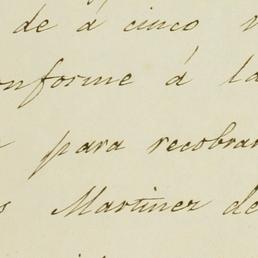 de á cinco
conforme á la
para recobrar
Martinez de